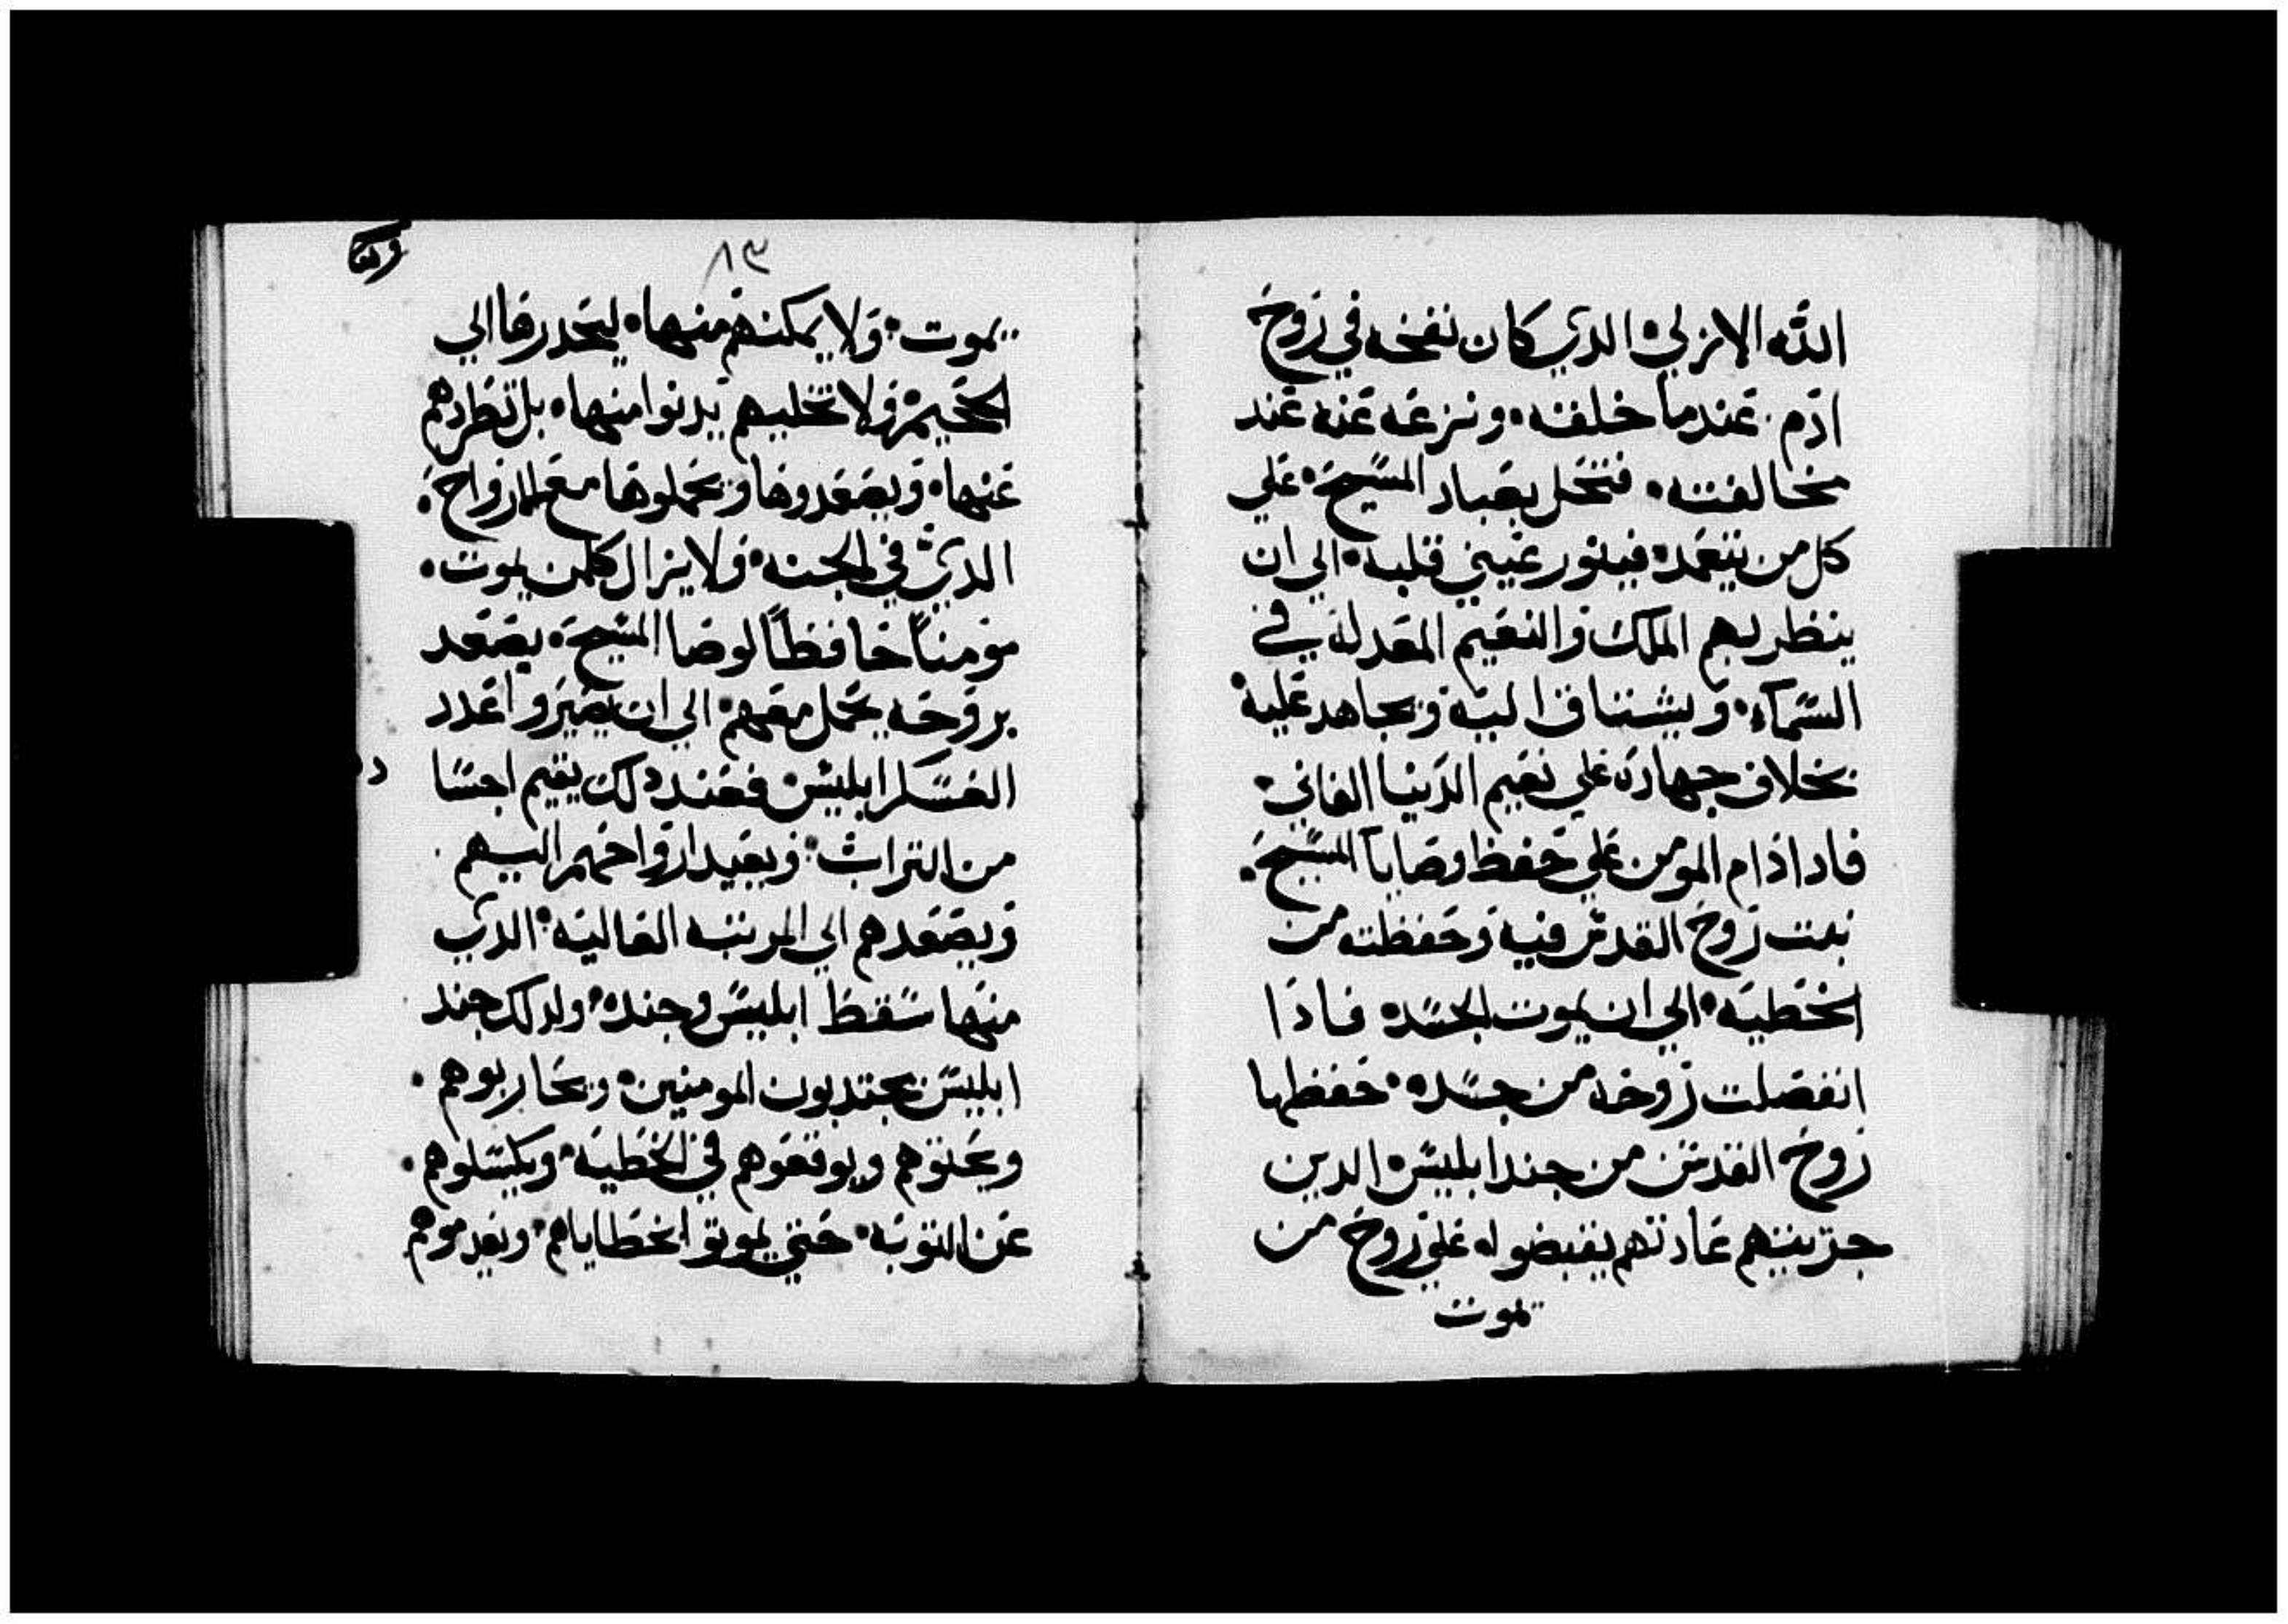 الله الازلي الدي كان نفخه في روح
ادم عندما خلقه ونزعه عنه عند
مخالفته فتحل بعباد المسيح علي
كل من يتعمد فينور عيني قلبه الي ان
ينظر لهم الملك والنعيم المعد له في
السماء ويشتاق اليه ويجاهد عليه
بخلاف جهاده علي نعيم الدنيا الفاني
فادا دام المومن علي حفظ وصايا المسيح
نمت روح القدس فيه وحفظته من
الخطيه الي ان يموت الجسد فادا
انفصلت روحه من جسده حفظها
روح القدس من جند ابليس الدين
جرت بينهم عادتهم يقبضوا علي روح من
يموت
وقف
٨٣
يموت ولا يمكنهم منها ليحدروها الي
الجحيم ولا تخليهم يدنوا منها بل تطردهم
عنها ويصعدوها ويحملوها مع الارواح
الدي في الجنه ولا يزال كلمن يموت
مومناً حافظاً لوصا المسيح يصعد
بروحه يحمل معهم الي ان يصيروا عدد
العسكر ابليس فعند دلك يقيم اجسا
د
من التراب ويعيد ارواحهم اليهم
ويصعدهم الي المرتبه العاليه الدي
منها سقط ابليس وجنده ولدلك جند
ابليس يجتدبون المومنين ويحاربوهم
ويحنوهم ويوقعوهم في الخطيه ويكسلوهم
عن التوبه حتي يموتوا بخطاياهم ويعدموهم